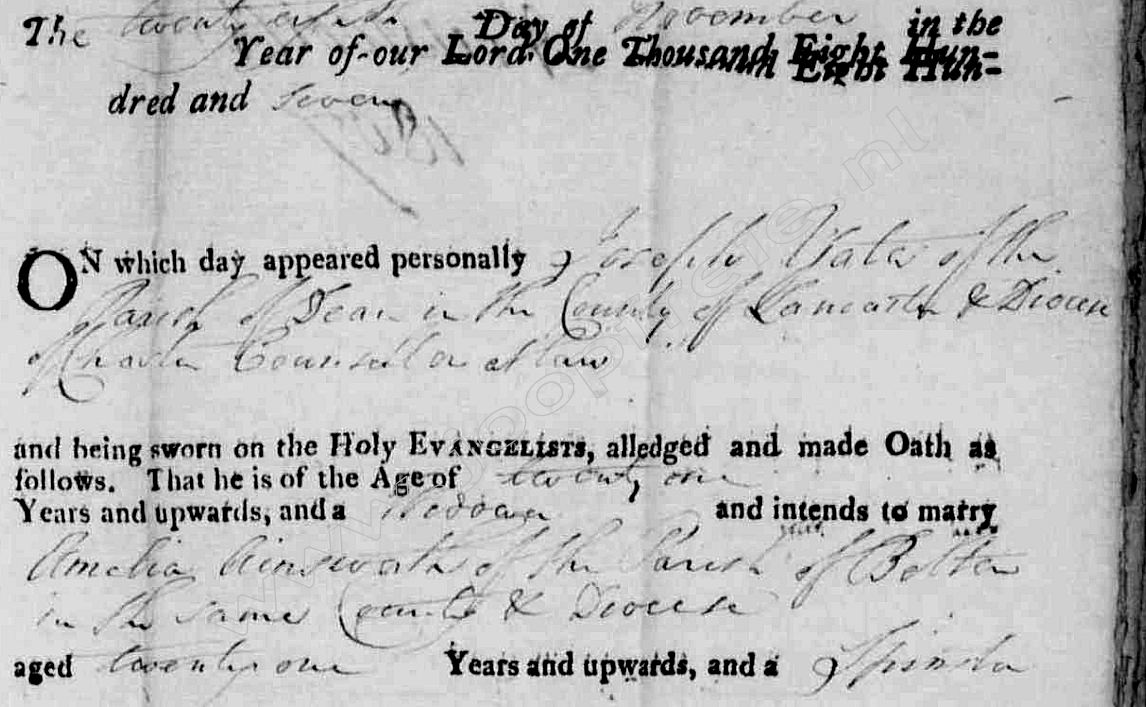 The twenty Day of November in the
Year of our Lord One Thousand Eight Hun-
dred and seven
1807
ON which day appeared personally Joseph Yates of the
Parish of Dean in the County of Lancaster & Diocese
of Chester Counsellor at Law
and being sworn on the Holy EVANGELISTS, alledged and made Oath as
follows. That he is of the Age of twenty one
Years and upwards, and a Widower and intends to marry
Amelia Ainsworth of the Parish of Bolton
in the same County & Diocese
aged twenty one Years and upwards, and a Spinster